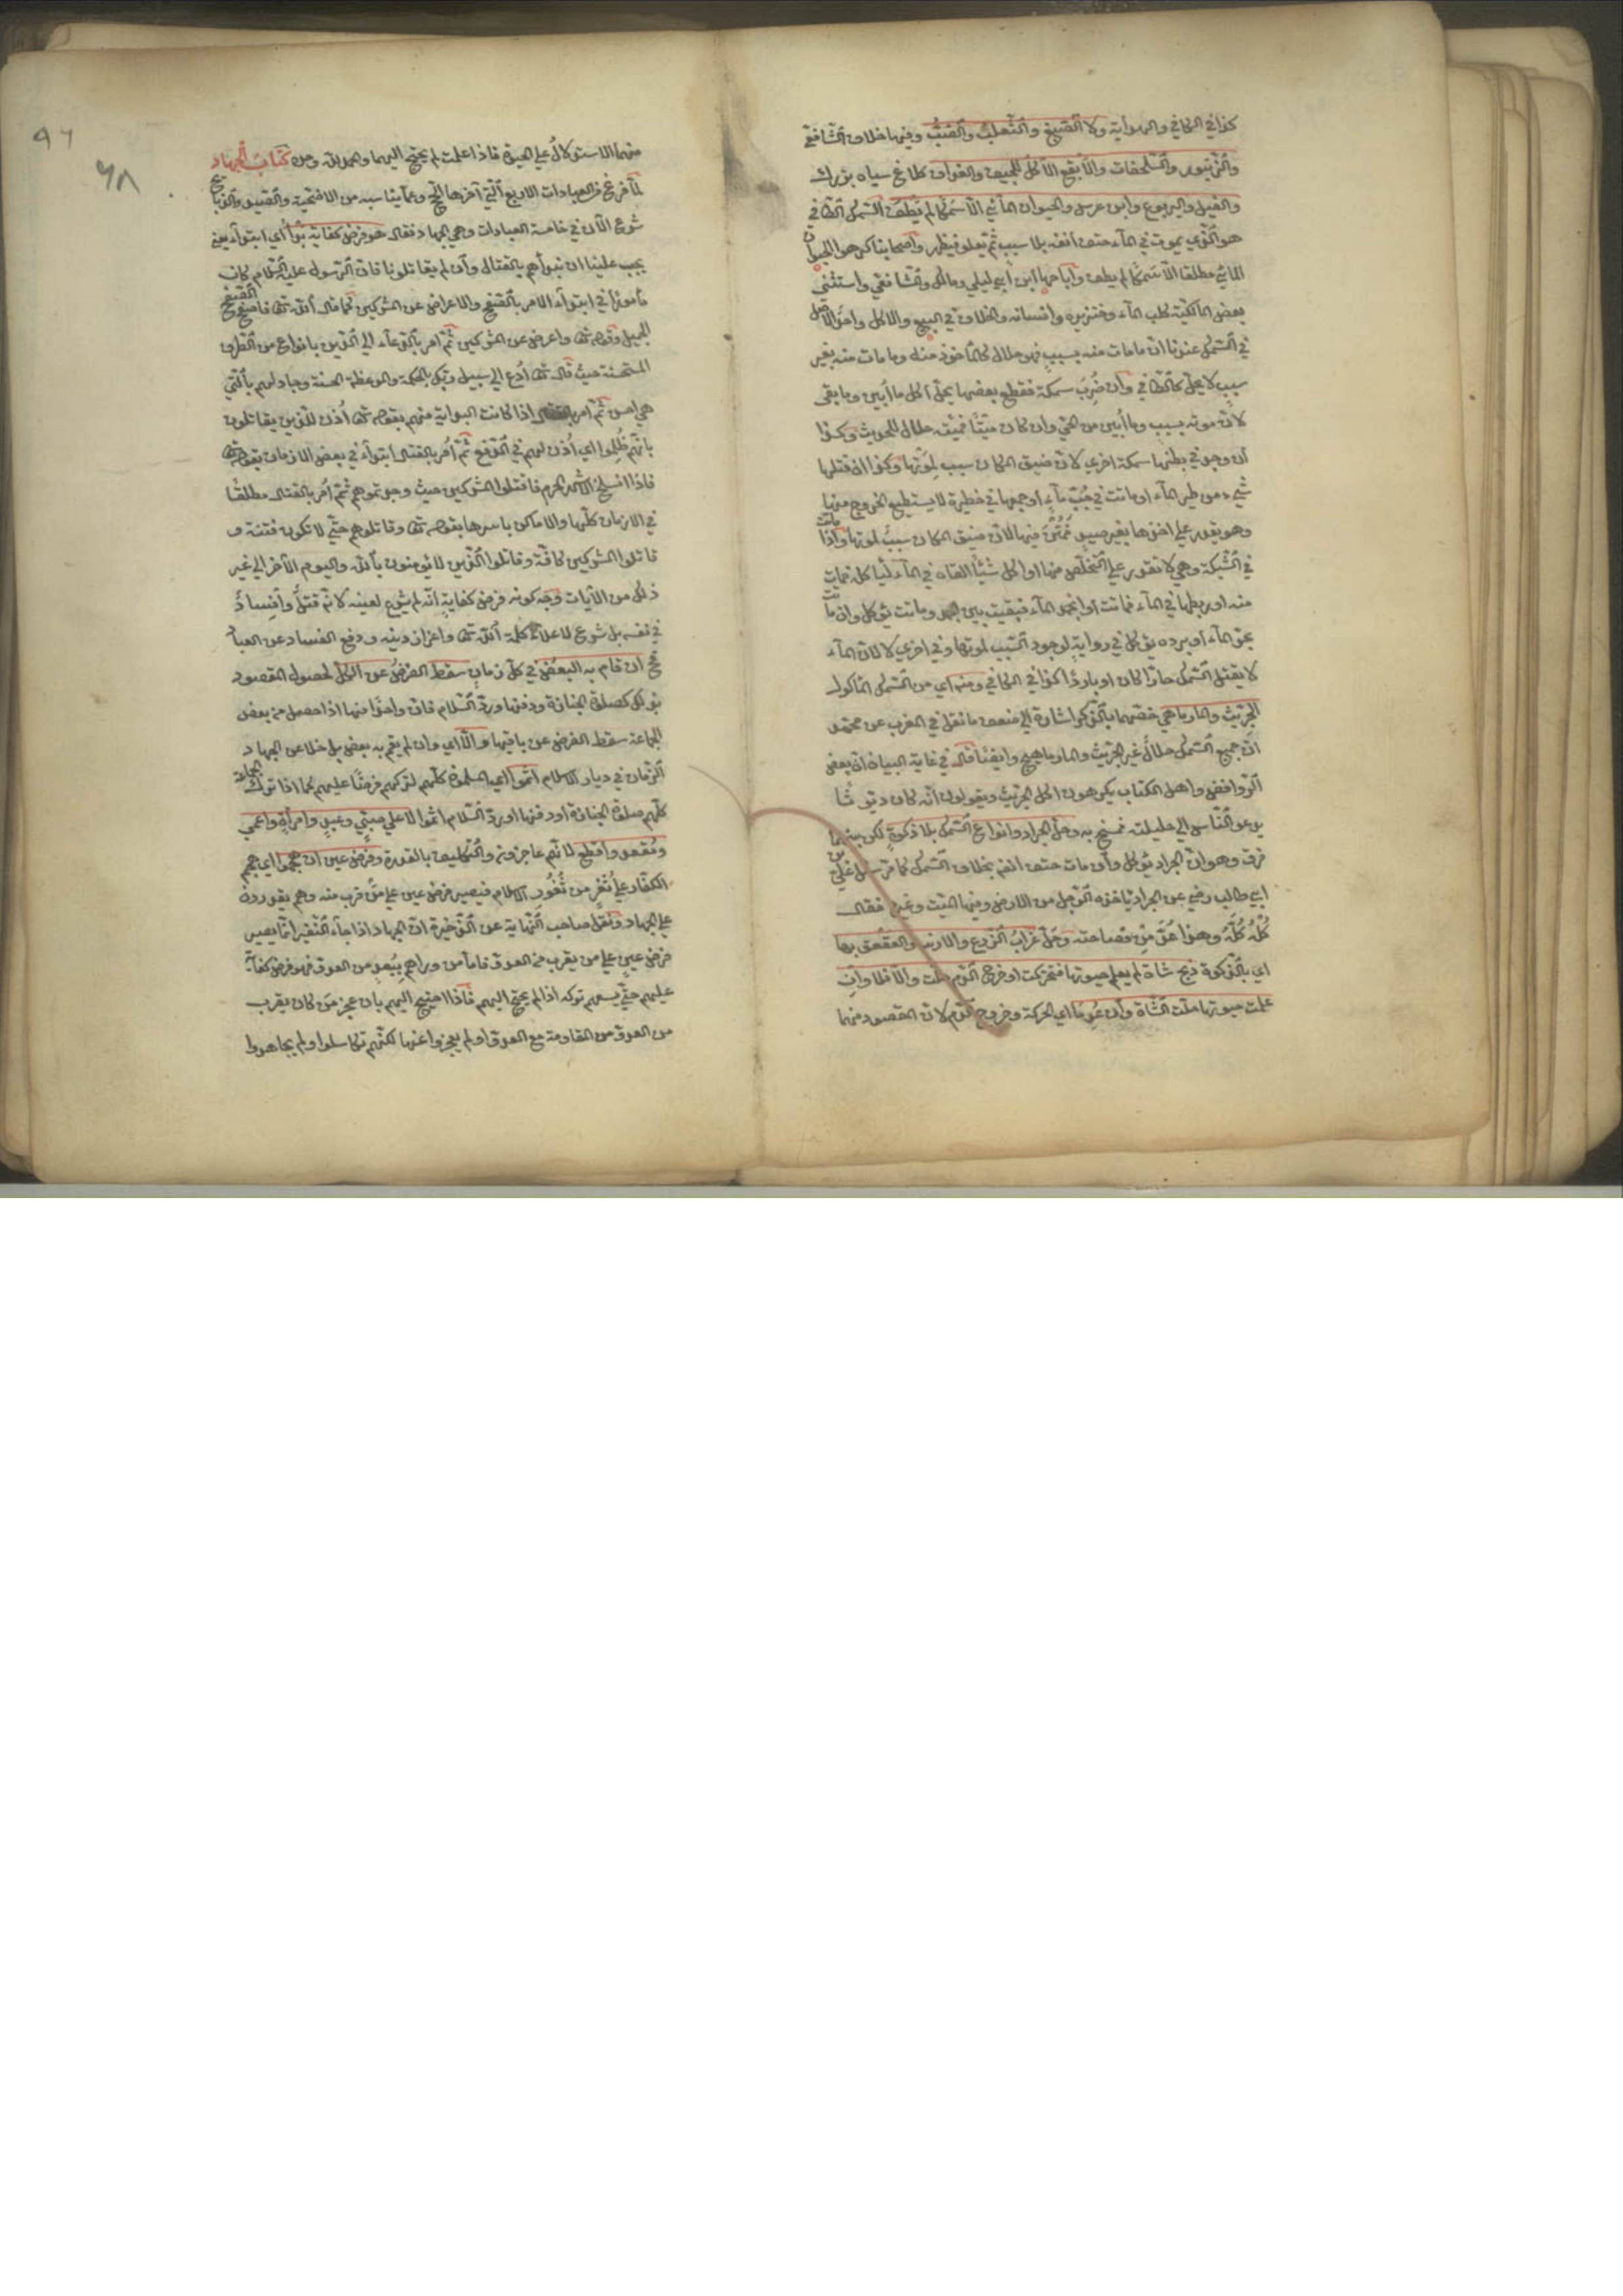 كذا في الكافي والهداية ولا الضبع والثعلب والضب وفيها خلاف الشافعي
والزنبور والسلحفات والأبقع الآكل للجيف والغداف كلاغ سياه بزرك
والفيل واليربوع وابن عرس والحيوان المائي الا سمكا لم يطف السمك الطافي
هو الذي يموت في الماء حتف انفه بلا سبب ثم يعلو فيظهر واصحابنا كرهوا الحيوان
المائي مطلقا الا سمكا لم يطف واباحها ابن ابي ليلى ومالك والشافعي واستثنى
بعض المالكية كلب الماء وخنزيره وانسانه والخلاف في البيع والاكل واحد الاصل
في السمك عندنا ان ما مات منه بسبب فهو حلال كالمأخوذ منه وما مات منه بغير
سبب لا يحل كالطافي وان ضرب سمكة فقطع بعضها يحل اكل ما أبين وما بقي
لان موته بسبب وما أبين من الحي وان كان ميتا فميتته حلال للحديث وكذا
ان وجد في بطنها سمكة اخرى لان ضيق المكان سبب لموتها وكذا ان قتلها
شيء من طير الماء او ماتت في جب ماء او جمعها في حظيرة لا يستطيع الخروج منها
وهو يقدر على اخذها بغير صيد فمتن فيها لان ضيق المكان سبب لموتها واذا ماتت
في الشبكة وهي لا تقدر على التخلص منها او اكل شيئا القاه في الماء ليأكله فمات
منه او ربطها في الماء فماتت او انجمد الماء فبقيت بين الجمد وماتت تؤكل وان ماتت
بحر الماء او برده يؤكل في رواية لوجود السبب لموتها وفي اخرى لا لان الماء
لا يقتل السمك حارا كان او باردا كذا في الكافي ومنه اي من السمك المأكول
الجريث والمارماهي خصهما بالذكر اشارة الى ضعف ما نقل في المغرب عن محمد
ان جميع السمك حلال غير الجريث والمارماهي وايضا قال في غاية البيان ان بعض
الروافض واهل الكتاب يكرهون اكل الجريث ويقولون انه كان ديوثا
يدعو الناس الى حليلته فمسخ به وحل الجراد وانواع السمك بلا ذكوة لكن بينهما
فرق وهو ان الجراد يؤكل وان مات حتف انفه بخلاف السمك كما مر سئل علي بن
ابي طالب رضي عن الجراد يأخذه الرجل من الارض وفيها الميت وغيره فقال
كله كله وهذا عد من فصاحته وحل غراب الزرع والارنب والعقعق بها
اي بالذكوة ذبح شاة لم يعلم حيوتها فتحركت او خرج الدم حلت والا فلا وان
علمت حيوتها حلت الشاة وان عدما اي الحركة وخروج الدم لان المقصود منهما
٩٦
٩٨
منهما الاستدلال على الحيوة فاذا علمت لم يحتج اليهما والحمد لله وحده كتاب الجهاد
لما فرغ من العبادات الاربع التي آخرها الحج وعما يناسبه من الاضحية والصيد والذبايح
شرع الآن في خامسة العبادات وهي الجهاد فقال هو فرض كفاية بدأ اي ابتداء يعني
يجب علينا ان نبدأهم بالقتال وان لم يقاتلونا فان الرسول عليه السلام كان
مأمورا في ابتداء الامر بالصفح والاعراض عن المشركين كما قال الله تعالى فاصفح الصفح
الجميل وقوله تعالى واعرض عن المشركين ثم امر بالدعاء الى الدين بانواع من الطرق
المستحسنة حيث قال تعالى ادع الى سبيل ربك بالحكمة والموعظة الحسنة وجادلهم بالتي
هي احسن ثم امر بالقتال اذا كانت البداية منهم بقوله تعالى أذن للذين يقاتلون
بانهم ظلموا اي أذن لهم في الدفع ثم أمر بالقتال ابتداء في بعض الازمان بقوله تعالى
فاذا انسلخ الاشهر الحرم فاقتلوا المشركين حيث وجدتموهم ثم أمر بالقتال مطلقا
في الازمان كلها والاماكن باسرها بقوله تعالى وقاتلوهم حتى لا تكون فتنة و
قاتلوا المشركين كافة وقاتلوا الذين لا يؤمنون بالله واليوم الآخر الى غير
ذلك من الآيات وجه كونه فرض كفاية انه لم يشرع لعينه لانه قتل وافساد
في نفسه بل شرع لاعلاء كلمة الله تعالى واعزاز دينه ودفع الفساد عن العباد
فح ان قام به البعض في كل زمان سقط الفرض عن الكل لحصول المقصود
بذلك كصلوة الجنازة ودفنها ورد السلام فان واحدا منها اذا حصل من بعض
الجماعة سقط الفرض عن باقيها والا اي وان لم يقم به بعض بل خلا عن الجهاد
الزمان في ديار الاسلام اثموا اي المسلمون كلهم لتركهم فرضا عليهم كما اذا ترك الجماعة
كلهم صلوة الجنازة او دفنها او رد السلام اثموا لا على صبي وعبد وامرأة واعمى
ومقعد واقطع لانهم عاجزون والتكليف بالقدرة وفرض عين ان هجموا اي هجم
الكفار على ثغر من ثغور الاسلام فيصير فرض عين على من قرب منه وهم يقدرون
على الجهاد ونقل صاحب النهاية عن الذخيرة ان الجهاد اذا جاء النفير انما يصير
فرض عين على من يقرب من العدو فاما من وراهم ببعد من العدو فهو فرض كفاية
عليهم حتى يسعهم تركه اذا لم يحتج اليهم فاذا احتيج اليهم بان عجز من كان يقرب
من العدو من المقاومة مع العدو او لم يعجزوا عنها لكنهم تكاسلوا ولم يجاهدوا